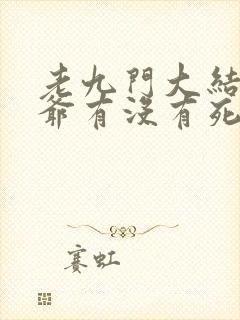 老九門大結
爺有沒有死
賽虹